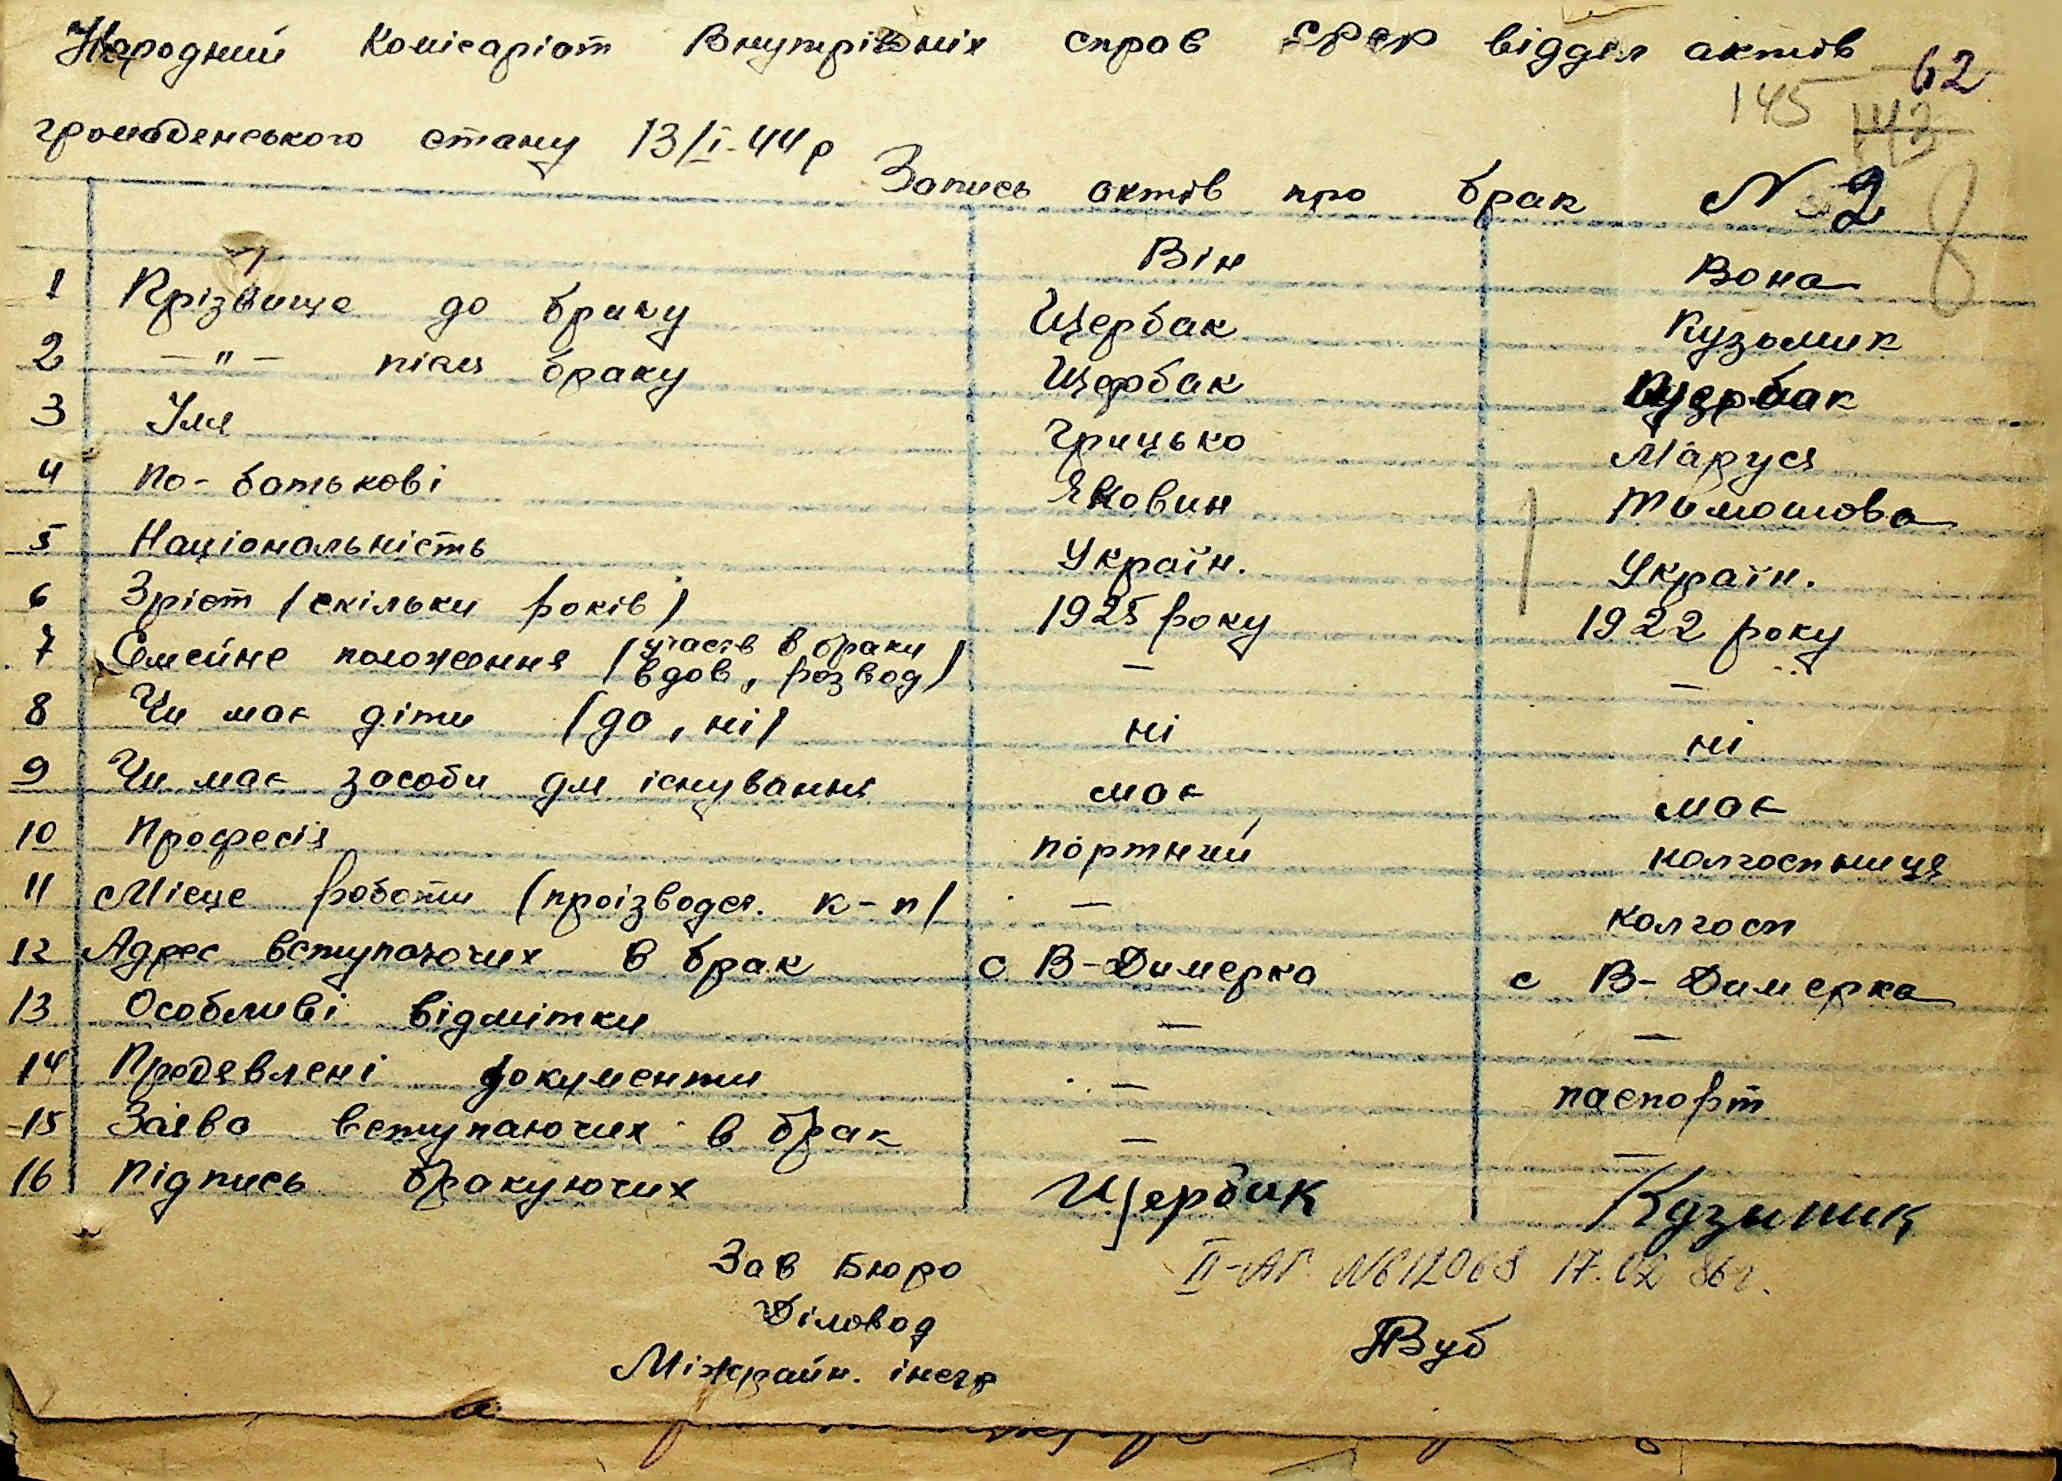 Народний Комісаріат Внутрішніх справ СРСР відділ актів 62
145 143
громаденського стану 13/I-44 р
Запись актів про брак N 2
8
Він Вона
1 Прізвище до браку Щербак Кузьмик
2 —"— післі браку Щербак Щербак
3 Імя Грицько Маруся
4 По-батькові Яковин Тимошова
5 Національність Україн. Україн.
6 Зріст /скільки років/ 1925 року 1922 року
7 Семейне положення /участв в браки вдов, розвод/ — —
8 Чи має діти /да, ні/ ні ні
9 Чи має засоби для існування має має
10 Професія портний колгоспниця
11 Місце роботи /проізводст. к-п/ — колгосп
12 Адрес вступаючих в брак с В-Димерка с В-Димерка
13 Особливі відмітки — —
14 Предявлені документи — паспорт
15 Заява вступаючих в брак — —
16 Підпись бракуючих Щербак Кузьмик
Зав Бюро II-АГ №612068 17.02 86г.
Діловод
Зуб
Міжрайн. інстр